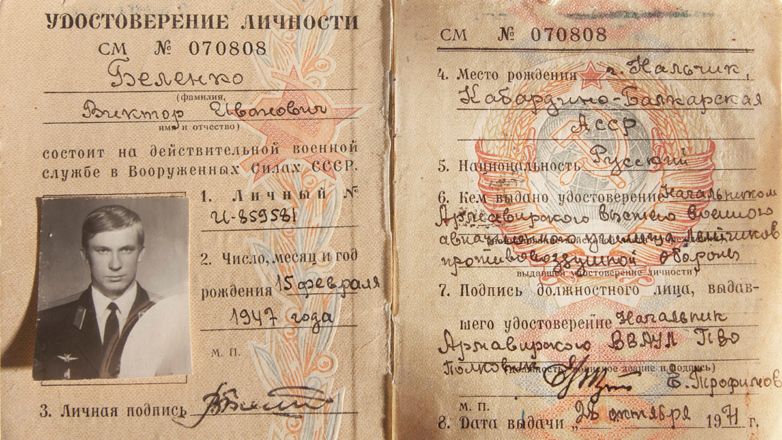 УДОСТОВЕРЕНИЕ ЛИЧНОСТИ
СМ № 070808
Беленко
(фамилия,
Виктор Иванович
имя и отчество)
состоит на действительной военной
службе в Вооруженных Силах СССР.
1. Личный №
И-859581
2. Число, месяц и год
рождения 15 февраля
1947 года
М. П.
3. Личная подпись
СМ № 070808
4. Место рождения г. Нальчик,
Кабардино-Балкарская
АССР
5. Национальность Русский
6. Кем выдано удостоверение Начальником
Армавирского высшего военного
авиационного училища лётчиков
противовоздушной обороны
выдавшей удостоверение личности)
7. Подпись должностного лица, выдав-
шего удостоверение Начальник
Армавирского ВВАУЛ ПВО
полковник
воинское звание и подпись)
Е. Трофимов
М. П.
8. Дата выдачи „28 октября 1971 г.